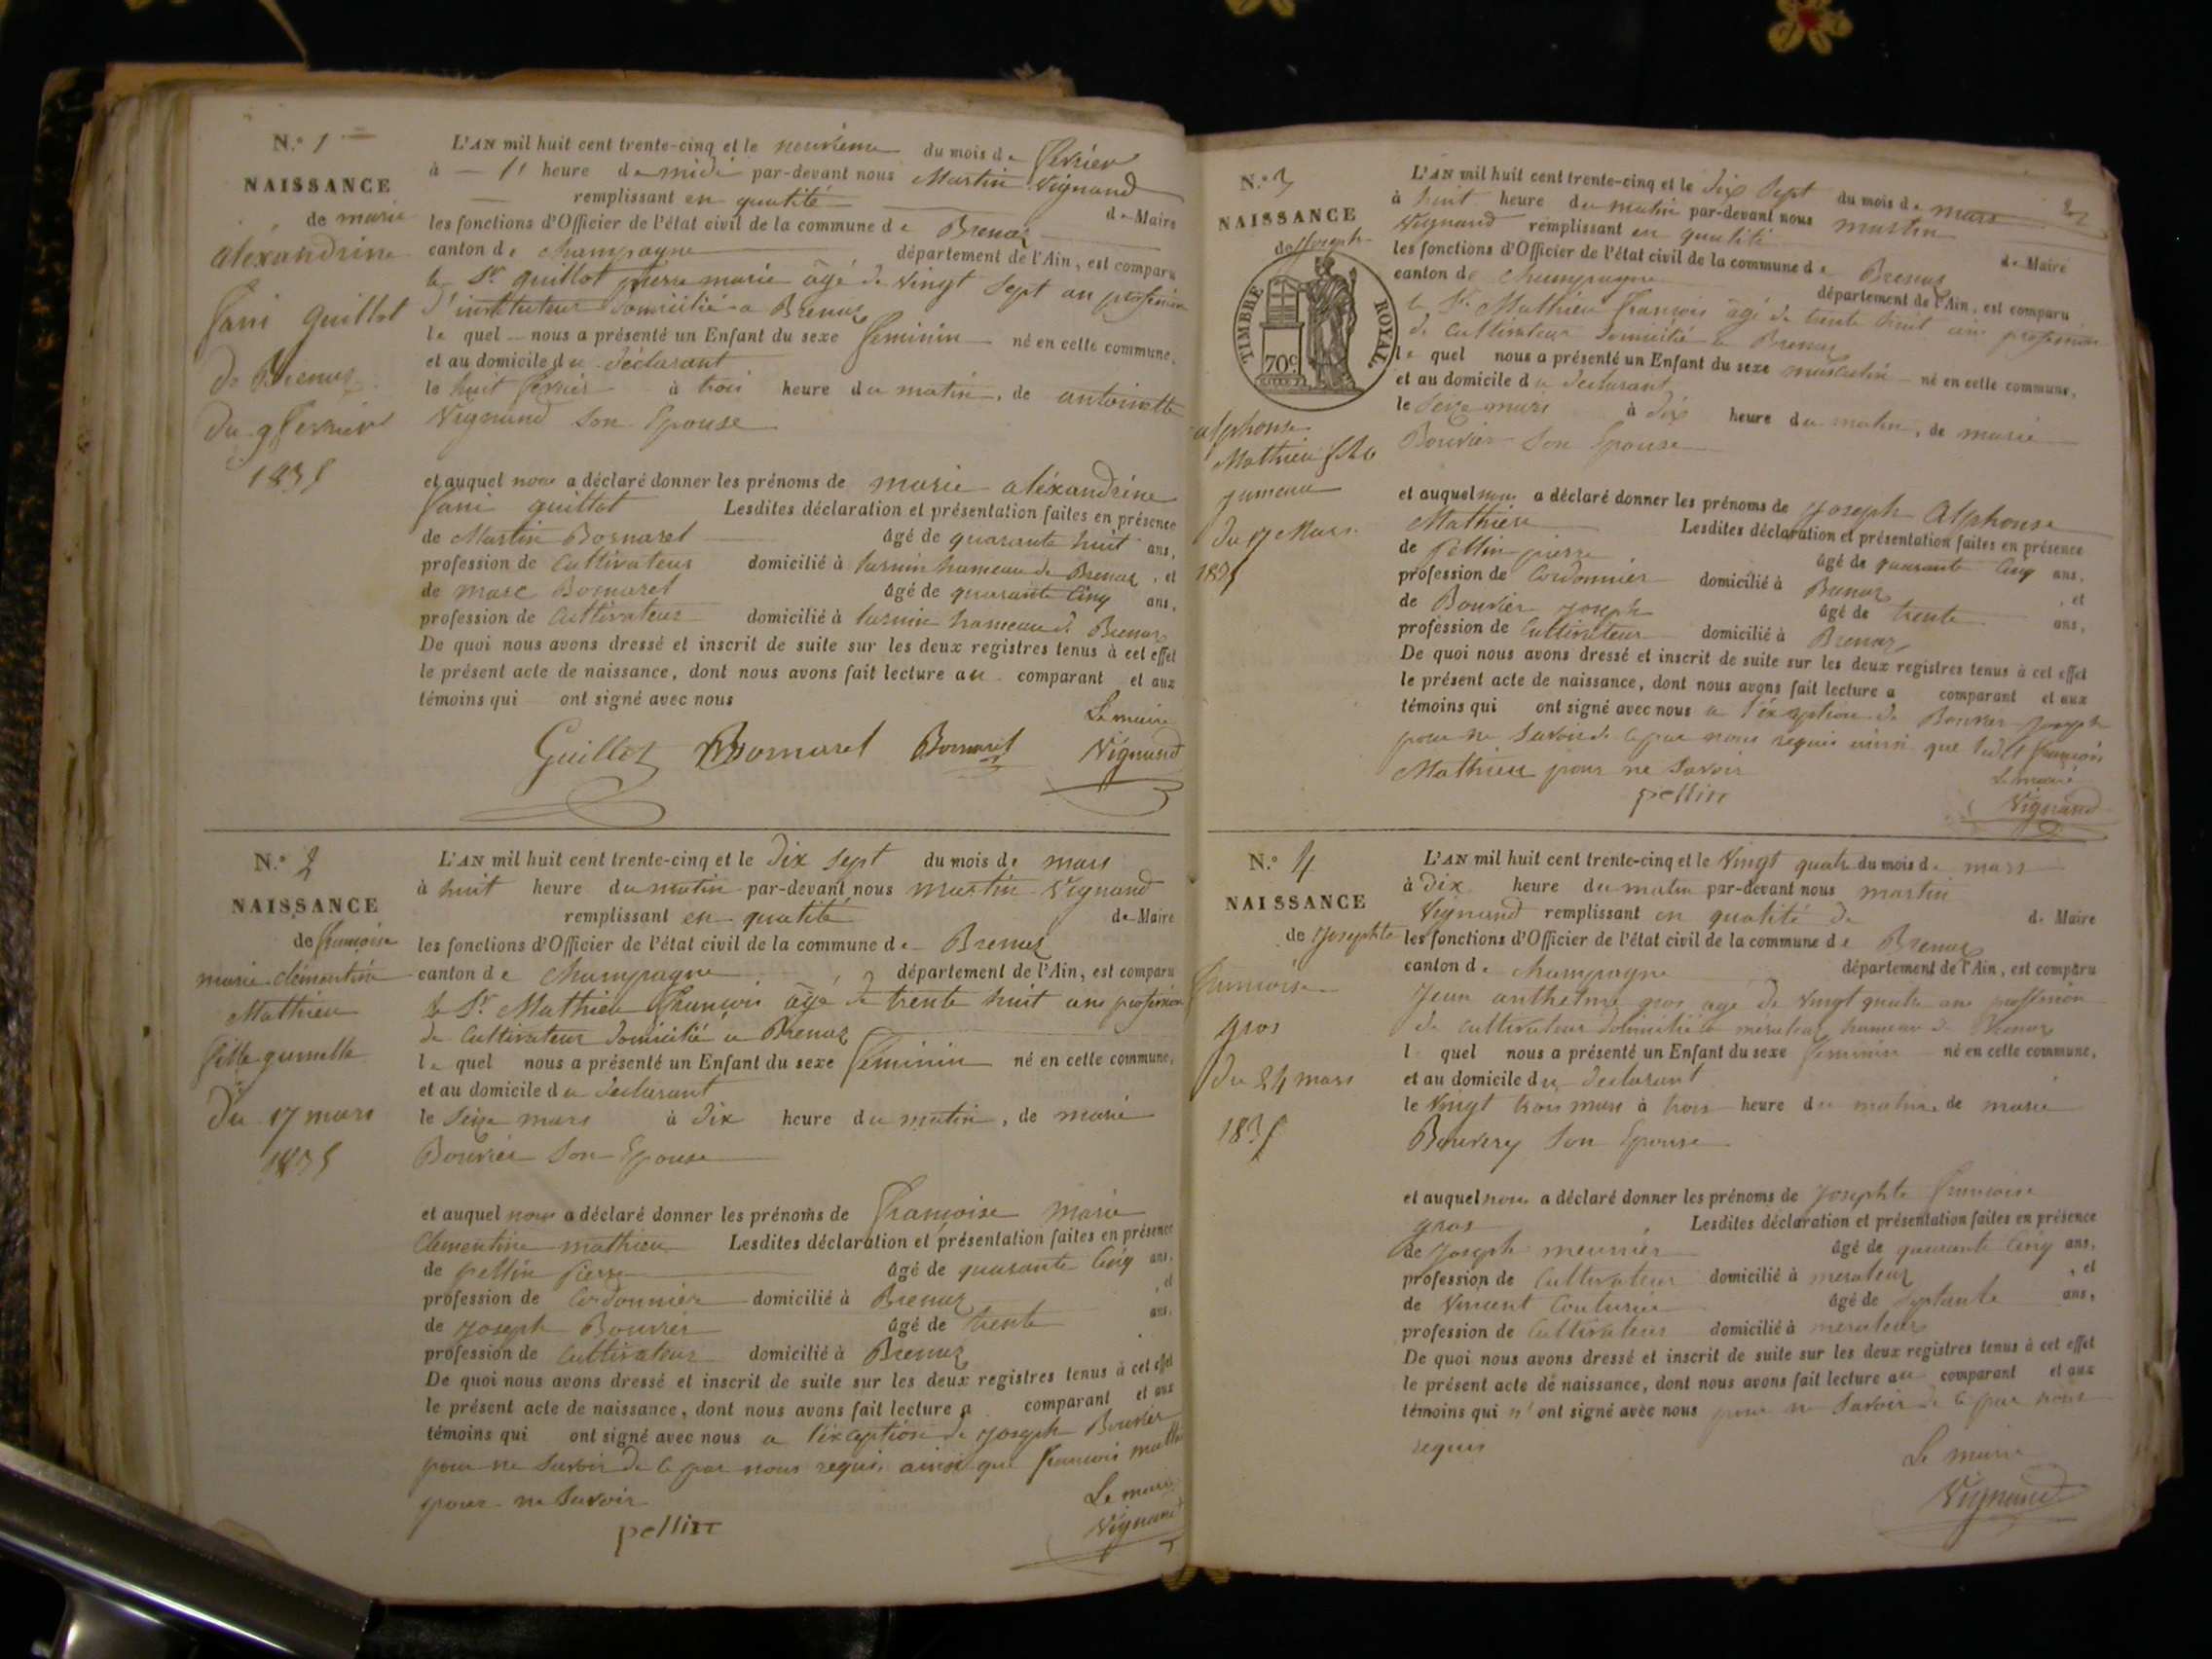 N.° 1
NAISSANCE
de marie
aléxandrine
fani guillot
de Brenaz
du 9 fevrier
1835
L'AN mil huit cent trente-cinq et le neuvieme du mois de fevrier
à 1 heure de midi par-devant nous Martin Vignand
remplissant en qualité de Maire
les fonctions d'Officier de l'état civil de la commune de Brenaz
canton de champagne département de l'Ain, est comparu
le Sr guillot pierre marie âgé de vingt sept an profession
d'instituteur domicilié a Brenaz
le quel nous a présenté un Enfant du sexe feminin né en cette commune,
et au domicile du déclarant
le huit fevrier à trois heure du matin, de antoinette
Vignand son Epouse
et auquel nous a déclaré donner les prénoms de marie aléxandrine
fani guillot Lesdites déclaration et présentation faites en présence
de Martin Bornarel âgé de quarante huit ans,
profession de cultivateur domicilié à hameau de Brenaz, et
de marc Bornarel âgé de quarante cinq ans,
profession de cultivateur domicilié à hameau de Brenaz
De quoi nous avons dressé et inscrit de suite sur les deux registres tenus à cet effet
le présent acte de naissance, dont nous avons fait lecture au comparant et aux
témoins qui ont signé avec nous
Le maire
Guillot Bornarel Bornarel Vignand
N.° 2
NAISSANCE
de françoise
marie clémentine
Mathieu
fille gumelle
du 17 mars
1835
L'AN mil huit cent trente-cinq et le dix sept du mois de mars
à huit heure du matin par-devant nous martin Vignand
remplissant en qualité de Maire
les fonctions d'Officier de l'état civil de la commune de Brenaz
canton de champagne département de l'Ain, est comparu
le Sr Mathieu françois âgé de trente huit ans profession
de cultivateur domicilié a Brenaz
le quel nous a présenté un Enfant du sexe féminin né en cette commune,
et au domicile du declarant
le seize mars à dix heure du matin, de marie
Bouvier son Epouse
et auquel nous a déclaré donner les prénoms de francoise marie
clementine mathieu Lesdites déclaration et présentation faites en présence
de pellin pierre âgé de quarante cinq ans,
profession de cordonnier domicilié à Brenaz, et
de joseph Bouvier âgé de trente ans,
profession de cultivateur domicilié à Brenaz
De quoi nous avons dressé et inscrit de suite sur les deux registres tenus à cet effet
le présent acte de naissance, dont nous avons fait lecture a comparant et aux
témoins qui ont signé avec nous a l'éxception de joseph Bouvier
pour ne savoir de ce par nous requis ainsi que francois
pour ne savoir
Le maire
pellin Vignand
N.° 3
NAISSANCE
de joseph
TIMBRE ROYAL
70c
alphonse
Mathieu
jumeau
du 17 Mars
1835
L'AN mil huit cent trente-cinq et le dix sept du mois de mars
à huit heure du matin par-devant nous martin
Vignand remplissant en qualité de Maire
les fonctions d'Officier de l'état civil de la commune de Brenaz
canton de champagne département de l'Ain, est comparu
le Sr Mathieu françois âgé de trente huit ans profession
de cultivateur domicilié a Brenaz
le quel nous a présenté un Enfant du sexe masculin né en cette commune,
et au domicile du declarant
le seize mars à dix heure du matin, de marie
Bouvier son Epouse
et auquel nous a déclaré donner les prénoms de joseph Alphonse
Mathieu Lesdites déclaration et présentation faites en présence
de Pellin pierre âgé de quarante cinq ans,
profession de cordonnier domicilié à Brenaz, et
de Bouvier joseph âgé de trente ans,
profession de cultivateur domicilié à Brenaz
De quoi nous avons dressé et inscrit de suite sur les deux registres tenus à cet effet
le présent acte de naissance, dont nous avons fait lecture a comparant et aux
témoins qui ont signé avec nous a l'éxception de Bouvier joseph
pour ne savoir de ce par nous requis ainsi que françois
Mathieu pour ne savoir
Le maire
pellin Vignand
N.° 4
NAISSANCE
de josephte
francoise
gros
du 24 mars
1835
L'AN mil huit cent trente-cinq et le vingt quatre du mois de mars
à dix heure du matin par-devant nous martin
Vignand remplissant en qualité de de Maire
les fonctions d'Officier de l'état civil de la commune de Brenaz
canton de champagne département de l'Ain, est comparu
jean anthelme gros agé de vingt quatre ans profession
de cultivateur domicilié a méraleaz hameau de Brenaz
l quel nous a présenté un Enfant du sexe feminin né en cette commune,
et au domicile du declarant
le vingt trois mars à trois heure du matin, de marie
Bouvery son Epouse
et auquel nous a déclaré donner les prénoms de josephte francoise
gros Lesdites déclaration et présentation faites en présence
de joseph meunier âgé de quarante cinq ans,
profession de cultivateur domicilié à meraleaz, et
de vincent Couturier âgé de septante ans,
profession de cultivateur domicilié à meraleaz
De quoi nous avons dressé et inscrit de suite sur les deux registres tenus à cet effet
le présent acte de naissance, dont nous avons fait lecture au comparant et aux
témoins qui n'ont signé avec nous pour ne savoir de ce par nous
requis
Le maire
Vignand